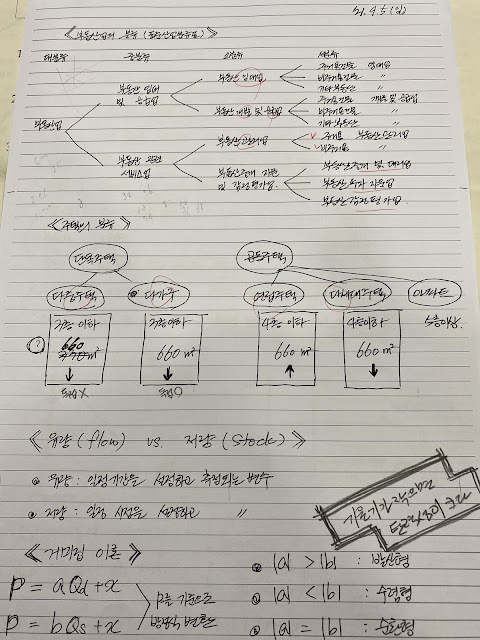 21. 9. 5 (일)
<부동산업의 분류 (한국표준산업분류)>
대분류 중분류 소분류 세분류
부동산업
부동산 임대 및 공급업
부동산 임대업
주거용건물 임대업
비주거용건물 〃
기타부동산 〃
부동산 개발 및 공급업
주거용건물 개발 및 공급업
비주거용건물 〃
기타부동산 〃
부동산 관련 서비스업
부동산관리업
✓ 주거용 부동산 관리업
✓ 비주거용 〃
부동산중개 자문 및 감정평가업
부동산중개 및 대리업
부동산 투자 자문업
부동산 감정평가업
<주택의 분류>
단독주택 공동주택
다중주택 다가구 연립주택 다세대주택 아파트
3층 이하 3층이하 4층 이하 4층이하 5층이상.
? 660 m² 660 m² 660 m² 660 m²
↓ ↓ ↑ ↓
독립X 독립O
《 유량 (flow) vs. 저량 (Stock) 》
유량 : 일정기간을 설정하고 측정되는 변수
저량 : 일정 시점을 설정하고 〃
기울기가 작으면
탄력성이 크다
《 거미집 이론 》
P = aQd + x
P = bQs + x
P를 기준으로
방정식 변환은
|a| > |b| : 발산형
|a| < |b| : 수렴형
|a| = |b| : 순환형